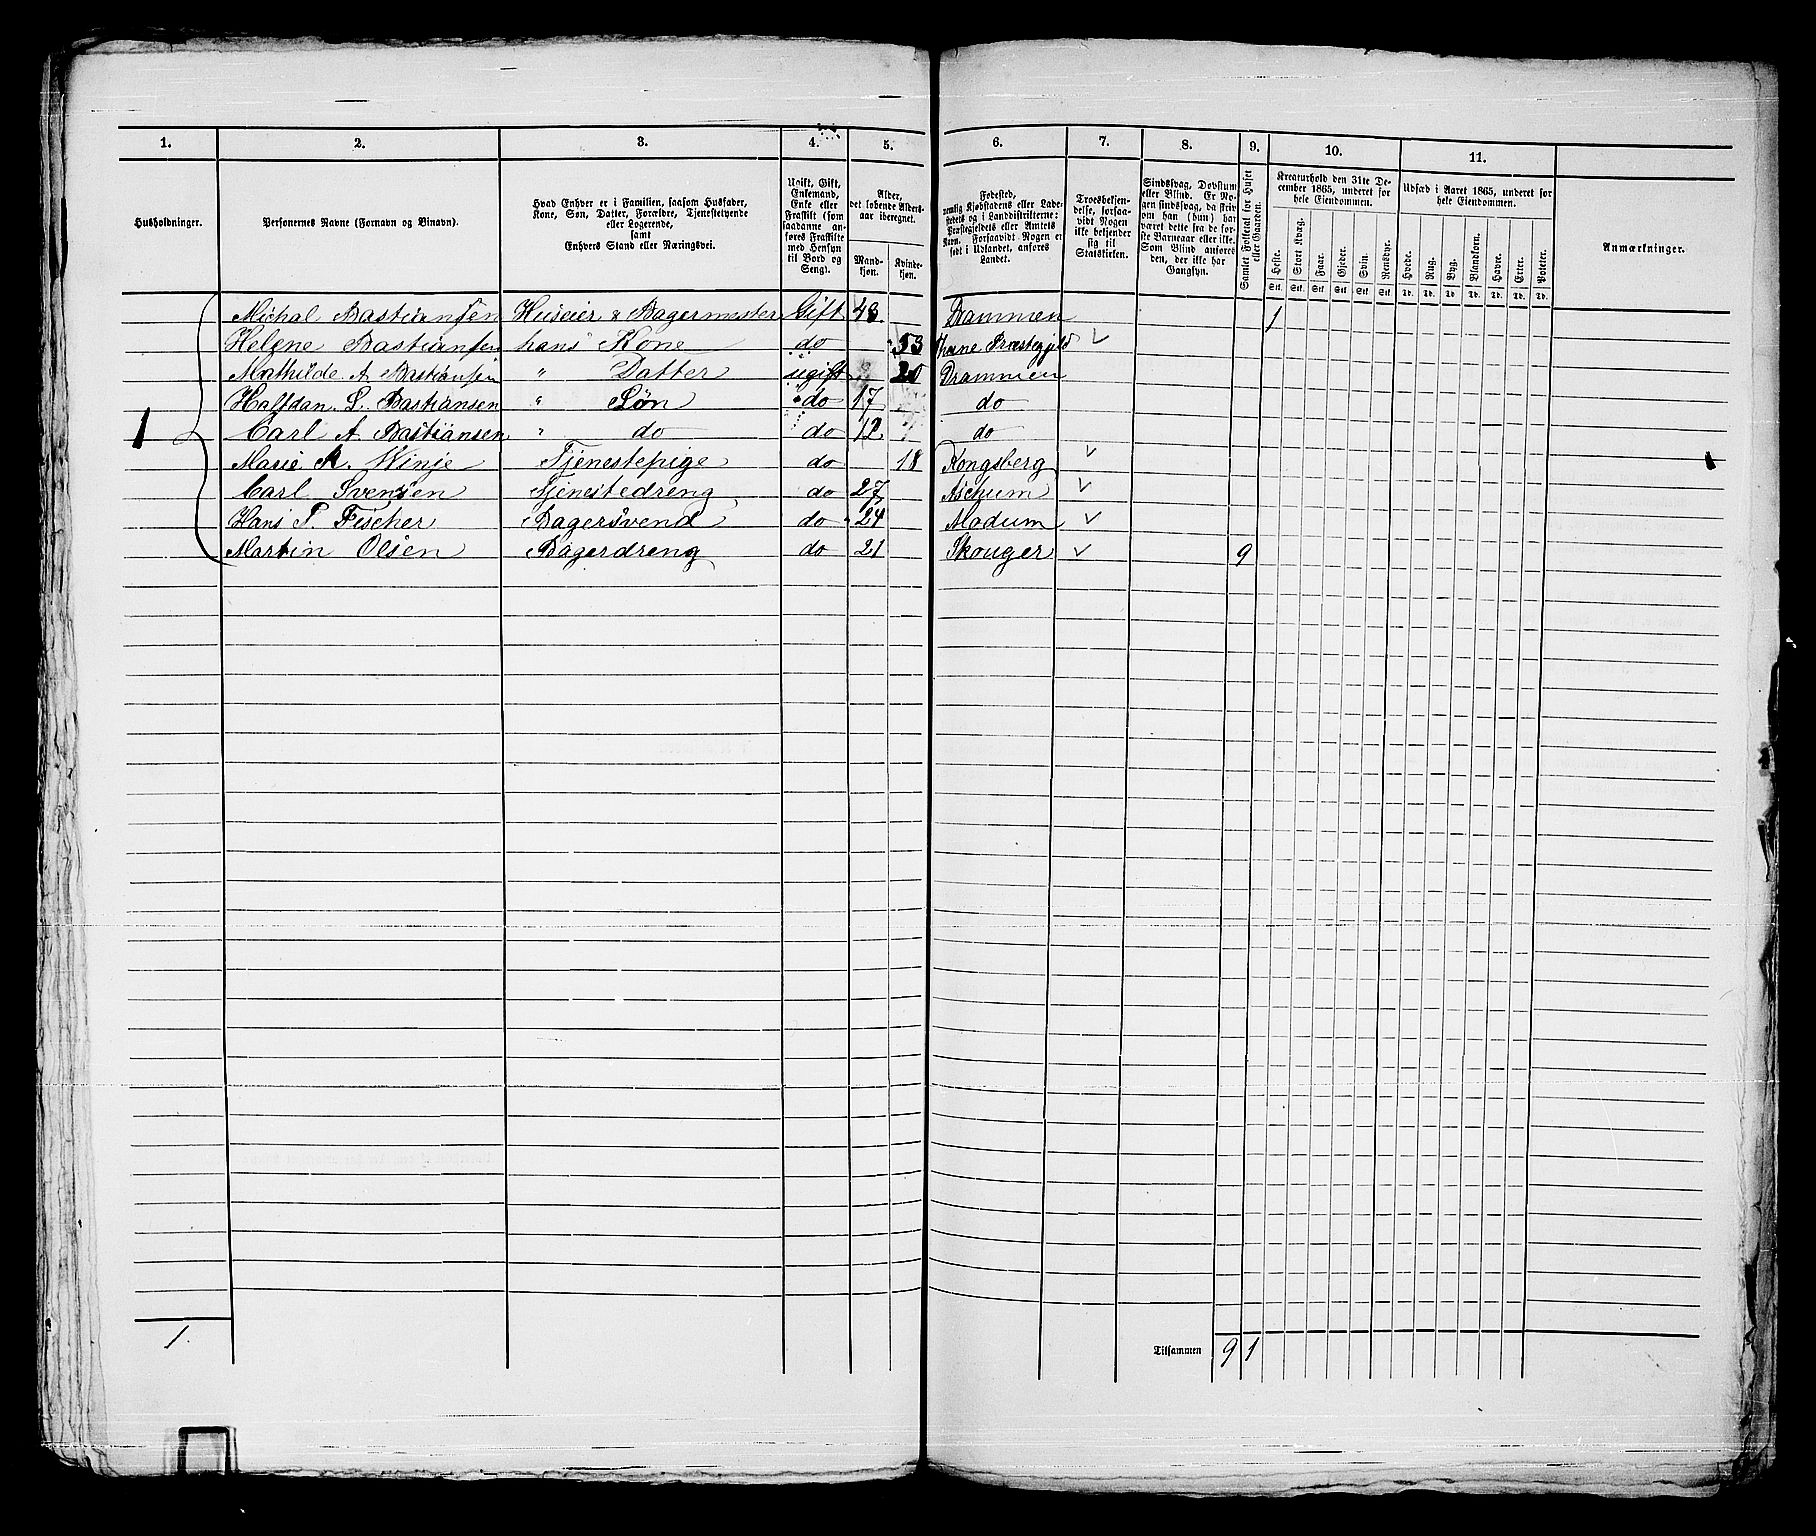 1. 2. 3. 4. 5. 6. 7. 8. 9. 10. 11.
Husholdninger.
Personernes Navne (Fornavn og Binavn).
Hvad Enhver er i Familien, saasom Husfader,
Kone, Søn, Datter, Forældre, Tjenestetyende
eller Logerende,
samt
Enhvers Stand eller Næringsvei.
Ugift, Gift,
Enkemand,
Enke eller
Fraskilt (som
saadanne an-
føres Fraskilte
med Hensyn
til Bord og
Seng).
Alder,
det løbende Alders-
aar iberegnet.
Mand-
kjøn.
Kvinde-
kjøn.
Fødested,
nemlig Kjøbstadens eller Lade-
stedets og i Landdistrikterne:
Præstegjeldets eller Amtets
Navn. Forsaavidt Nogen er
født i Udlandet, anføres
Landet.
Troesbekjen-
delse, forsaa-
vidt Nogen
ikke bekjender
sig til
Statskirken.
Sindssvag, Døvstum
eller Blind. Er No-
gen sindssvag, da skriv
om han (hun) har
været dette fra de før-
ste Barneaar eller ikke.
Som Blind anføres
den, der ikke har
Gangsyn.
Samlet Folketal for Huset
eller Gaarden.
Kreaturhold den 31te De-
cember 1865, underet for
hele Eiendommen.
Heste. Stort Kvæg. Faar. Gjeder. Svin. Rensdyr.
Stk. Stk. Stk. Stk. Stk. Stk.
Udsæd i Aaret 1865, underet for
hele Eiendommen.
Hvede. Rug. Byg. Blandkorn. Havre. Erter. Poteter.
Td. Td. Td. Td. Td. Td. Td.
Anmærkninger.
1
Michal Bastiansen Huseier & Bagermester Gift 48 Drammen 1
Helene Bastiansen hans Kone do 53 Præstegjeld
Mathilde A Bastiansen " Datter ugift 20 Drammen
Halfdan S. Bastiansen " Søn do 17 do
Carl A Bastiansen " do do 12 do
Marie A. Winje Tjenestepige do 18 Kongsberg
Carl Svensen Tjenestedreng do 27 Aschum
Hans P. Fischer Bagersvend do 24 Modum
Martin Olsen Bagerdreng do 21 Skouger 9
1. Tilsammen 9 1